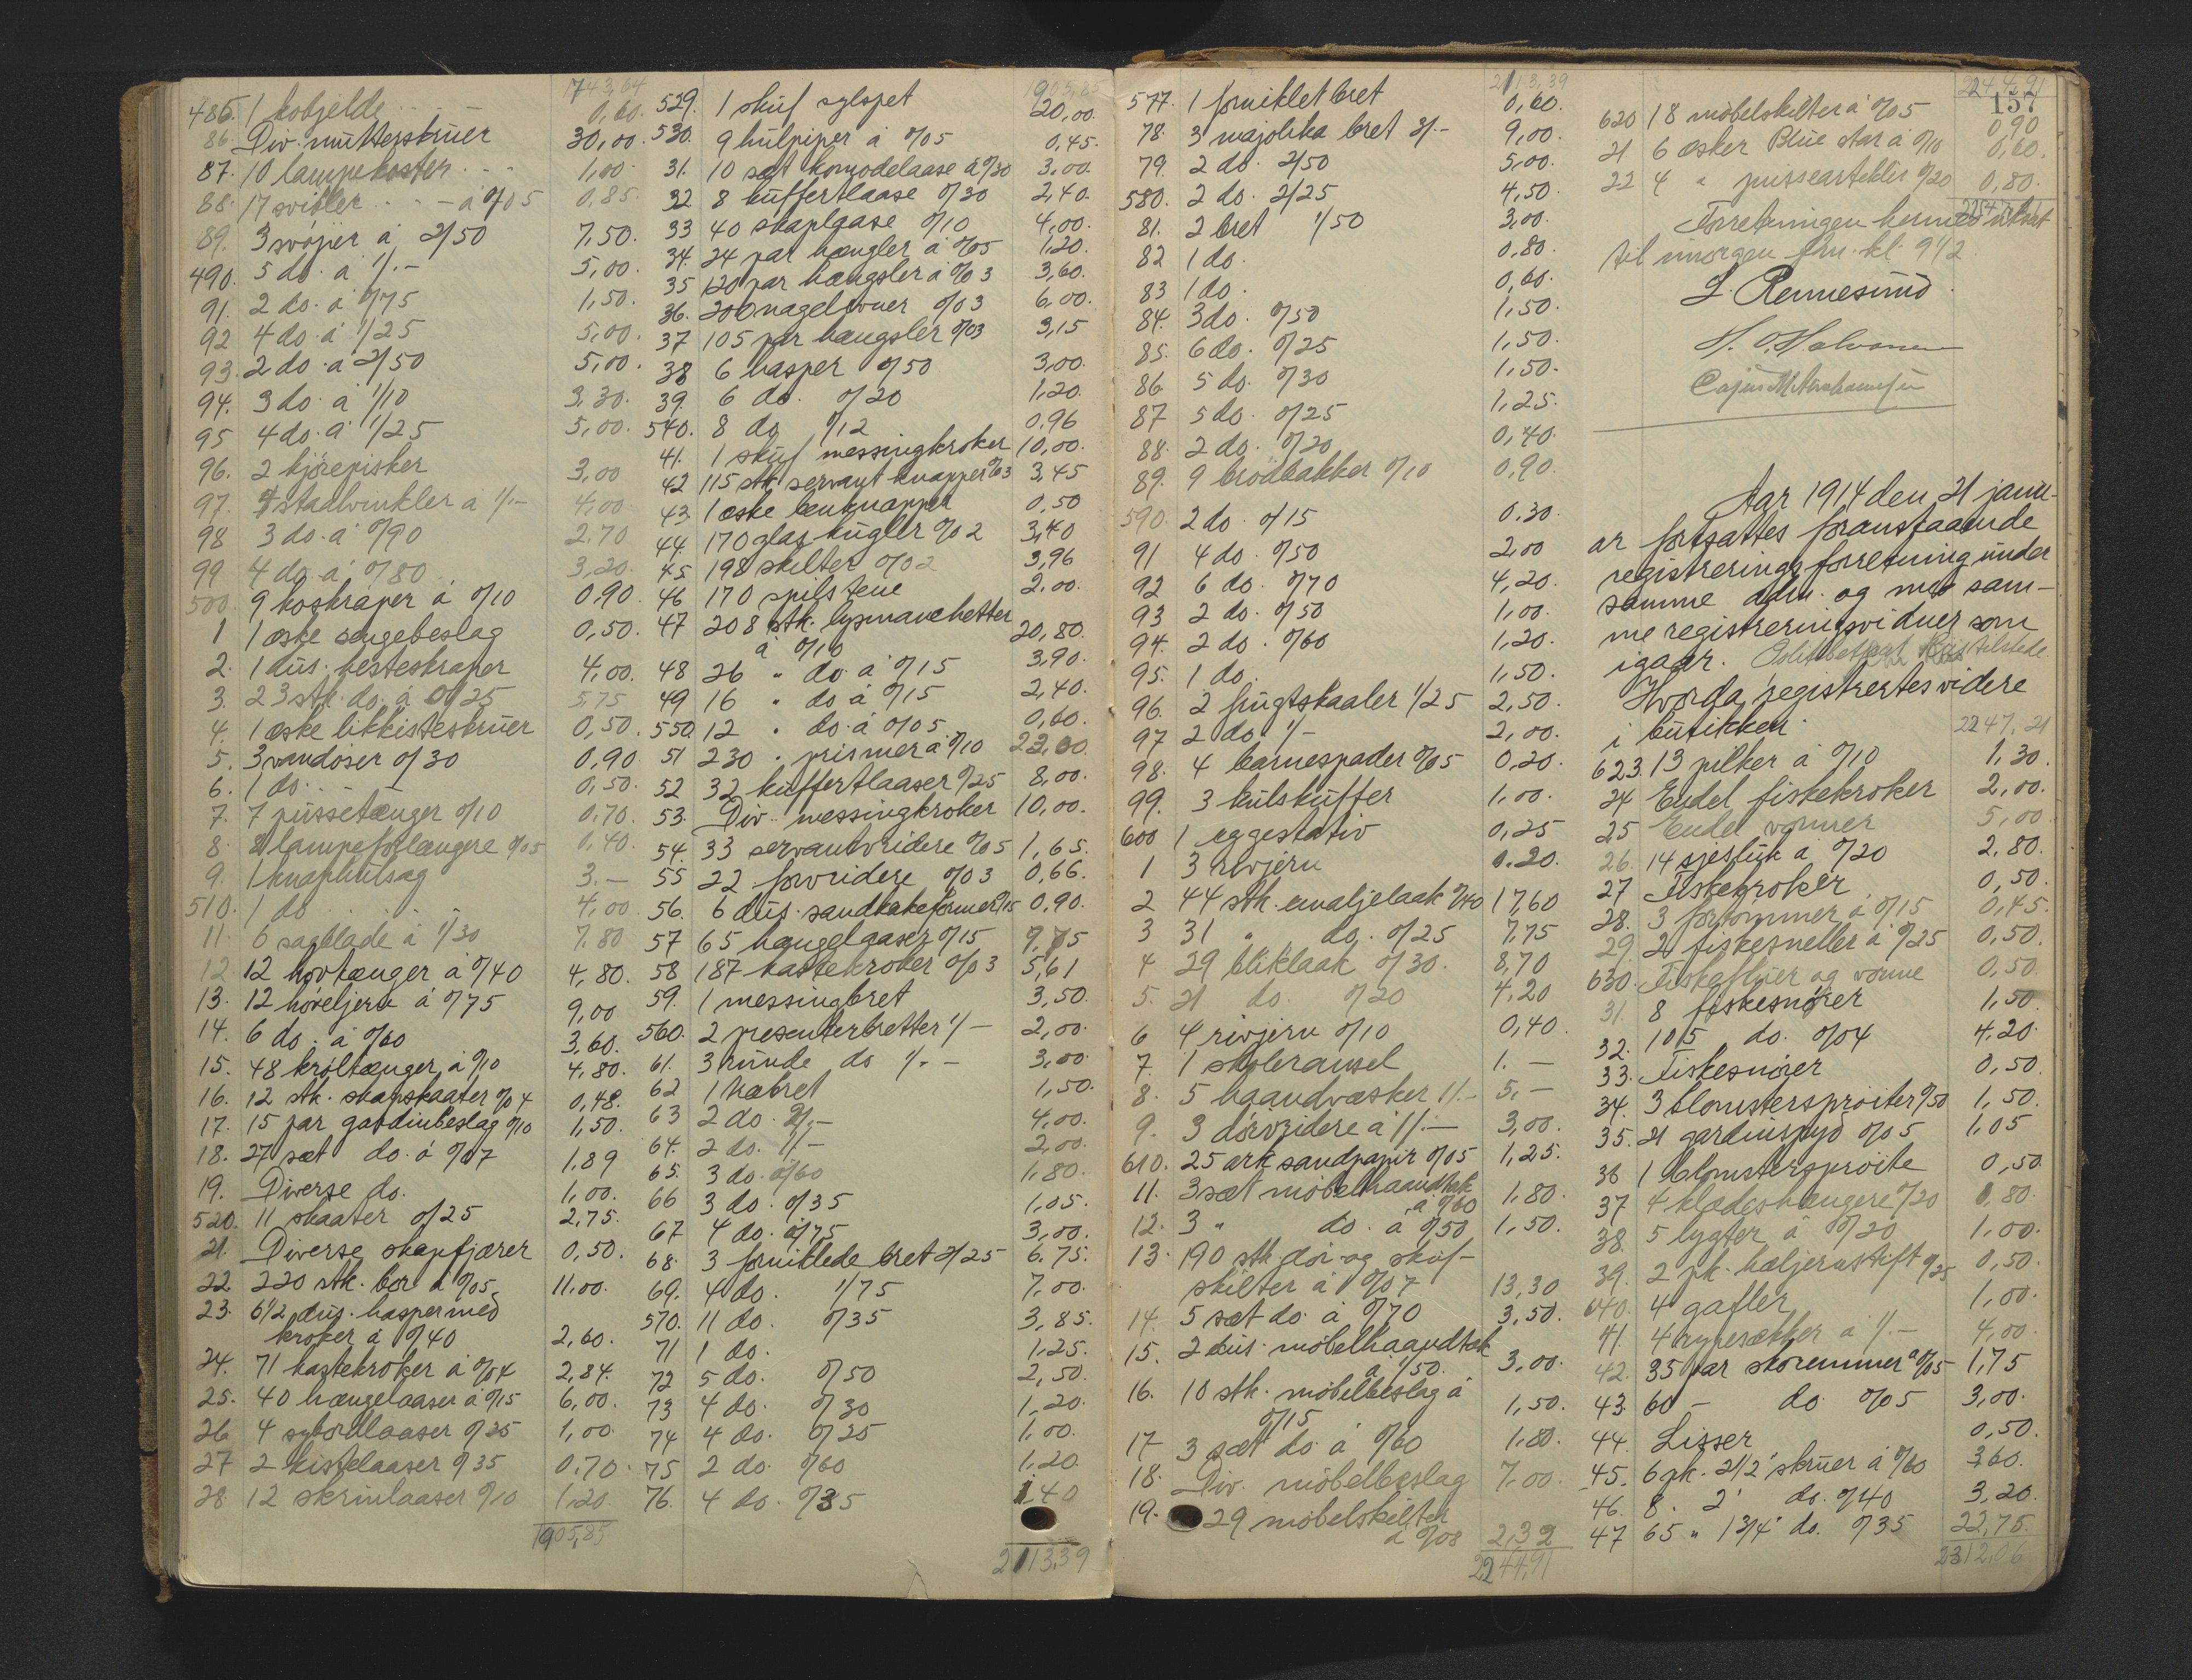 743,64
485. 1 kobjelde 0,60.
86. Div. mutterskruer 30,00
87. 10 lampekoster 1,00
88. 17 svibler à 0/05 0,85
89. 3 svøper à 2/50 7,50.
490. 5 do. à 1/- 5,00.
91. 2 do. à 0/75 1,50.
92 4 do. à 1/25 5,00.
93. 2 do. à 2/50 5,00.
94. 3 do. à 1/10 3,30.
95 4 do. à 1/25 5,00.
96. 2 kjørepisker 3,00
97. 4 staalvinkler à 1/- 4,00
98 3 do. à 0/90 2.70
99 4 do. à 0/80 3,20.
500. 9 koskraper à 0/10 0,90
1 1 æske sengebeslag 0,50.
2. 1 dus. hesteskraper 4,00.
3. 23 stk. do. à 0/25 5,75
4. 1 æske likkisteskruer 0,50.
5. 3 vandøser 0/30 0,90
6. 1 do. 0,50.
7. 7 pussetænger 0/10 0,70.
8. 8 lampeforlængere 0/05 0,40.
9. 1 knaphulsag 3.-
510. 1 do 4,00
11. 6 sagblade à 1/30 7,80
12 12 hovtænger à 0/40 4,80.
13. 12 høveljern à 0/75 9,00
14. 6 do. à 0/60 3,60.
15. 48 krøltænger à 0/10 4,80.
16. 12 stk. skapskaater 0/04 0,48.
17. 15 par gardinbeslag 0/10 1,50.
18. 27 sæt do. à 0/07 1,89
19. Diverse do. 1,00.
520. 11 skaater 0/25 2,75.
21. Diverse skapfjærer 0,50.
22. 220 stk. bor à 0/05 11,00.
23. 6 1/2 dus. hasper med
kroker à 0/40 2,60.
24. 71 kastekroker à 0/04 2,84.
25. 40 hængelaaser à 0/15 6,00.
26 4 sybordlaaser 0/25 1,00
27 2 kistelaaser 0/35 0.70
28 12 skrinlaaser 0/10 1,20.
1905,85
1905,85
529. 1 skuf sylspet 20,00.
530. 9 hulpiper à 0/05 0,45.
31. 10 sæt komodelaase à 0/30 3,00.
32 8 kuffertlaase 0/30 2,40.
33 40 skaplaase 0/10 4,00.
34. 24 par hængler à 0/05 1,20.
35 120 par hængsler à 0/03 3,60.
36. 200 nagelovner 0/03 6,00.
37 105 par hængsler 0/03 3,15
38 6 hasper 0/50 3,00.
39. 6 do. 0/20 1,20.
540. 8 do 0/12 0,96
41. 1 skuf messingkroker 10,00.
42 115 stk. servantknapper 0/03 3,45
43 1 æske benknapper 0,50
44. 170 glaskugler 0/02 3,40
45 198 skilter 0/02 3,96
46 170 spilstene 2.00.
47 208 stk. lysmanchetter
à 0/10 20,80.
48 26 " do. à 0/15 3,90.
49 16 " do à 0/15 2,40.
550. 12 " do. à 0/05 0,60.
51 230 " prismer à 0/10 23,00
52 32 kuffertlaaser 0/25 8,00.
53. Div. messingkroker 10,00.
54. 33 servantvridere 0/05 1,65.
55 22 forvridere 0/03 0,66.
56. 6 dus. sandkakeformer 0/15 0,90.
57 65 hængelaaser 0/15 9,75
58 187 kastekroker 0/03 5,61
59. 1 messingbret 3,50.
560. 2 presenterbretter 1/- 2,00.
61. 3 runde do 1/- 3,00.
62 1 træbret 1,50.
63 2 do. 2/- 4,00.
64. 2 do. 1/- 2,00.
65. 3 do. 0/60 1,80.
66 3 do. 0/35 1,05.
67 4 do. 0/75 3,00.
68. 3 forniklede bret 2/25 6.75.
69. 4 do. 1/75 7,00.
570. 11 do. 0/35 3,85.
71 1 do. 1,25.
72 5 do. 0/50 2,50.
73 4 do. 0/30 1,20.
74 4 do. 0/25 1,00.
75 2 do. 0/60 1.20.
76. 4 do. 0/35 1,40
2113,39
2113,39
577. 1 forniklet bret 0,60.
78. 3 majolika bret 3/- 9,00.
79. 2 do. 2/50 5,00.
580. 2 do. 2/25 4,50.
81. 2 bret 1/50 3,00.
82 1 do. 0,80.
83 1 do. 0,60.
84. 3 do. 0/50 1,50.
85. 6 do. 0/25 1,50.
86 5 do. 0/30 1,50.
87 5 do. 0/25 1,25.
88. 2 do. 0/20 0,40.
89. 9 brødbakker 0/10 0,90.
590. 2 do. 0/15 0.30.
91 4 do. 0/50 2,00
92 6 do. 0/70 4,20.
93 2 do. 0/50 1,00.
94. 2 do. 0/60 1,20.
95. 1 do. 1,50.
96. 2 frugtskaaler 1/25 2,50.
97 2 do. 1/- 2,00.
98. 4 barnespader 0/05 0,20.
99. 3 kulskuffer 1,00.
600 1 eggestativ 0,25
1 3 rivjern 0.20.
2 44 stk. emaljelaak 0/40 17,60
3 31 " do. 0/25 7,75
4 29 bliklaak 0/30. 8,70
5. 21 do. 0/20 4.20
6 4 rivjern 0/10 0,40.
7. 1 skoleransel 1.-
8. 5 haandvæsker 1/- 5,-
9. 3 dørvridere à 1/- 3,00.
610. 25 ark sandpapir 0/05 1,25.
11. 3 sæt møbelhaandtak
à 0/60 1,80.
12. 3 " do. à 0/50 1,50.
13. 190 stk. dør- og skuf-
skilter à 0/07 13,30
14. 5 sæt do. à 0/70 3,50.
15. 2 dus. møbelhaandtak
à 1/50. 3,00.
16. 10 stk. møbelbeslag à
0/15 1,50.
17 3 sæt do à 0/60 1.80.
18. Div. møbelbeslag 7,00.
19. 29 møbelskilter
à 0/08 2,32
2244,91
2244,91
157
620 18 møbelskilter à 0/05 0,90
21 6 æsker Blue star à 0/10 0,60.
22 4 " pusseartikler 0/20 0,80.
2247,21
Forretningen hermed utsat
til imorgen fm. kl. 9 1/2.
L. Rennesund.
H. O. Halvorsen
Aar 1914 den 21 janu-
ar fortsattes foranstaaende
registreringsforretning under
samme adm. og med sam-
me registreringsvidner som
igaar. tilstede
Hvorda registrertes videre
i butikken. 2247,21
623. 13 pilker à 0/10 1,30.
24 Endel fiskekroker 2,00.
25 Endel vormer 5,00
26. 14 sjøsluk a 0/20 2,80.
27 Fiskekroker 0,50.
28. 3 fortommer à 0/15 0,45.
29. 2 fiskesneller à 0/25 0,50.
630. Fiskefluer og vorme 0,50.
31. 8 fiskesnører 1,50.
32. 105 do. 0/04 4,20.
33. Fiskesnører 0,50.
34. 3 blomstersprøiter 0/50 1,50.
35. 21 gardinspyd 0/05 1,05
36 1 blomstersprøite 0,50.
37 4 klædeshængere 0/20 0,80.
38. 5 lygter à 0/20 1,00.
39. 2 pk. hæljernstift 0/25 0,50.
640. 4 gafler 1,00.
41. 4 rypesækker à 1/- 4,00.
42. 35 par skoremmer à 0/05 1,75
43. 60 - do 0/05 3,00.
44. Lisser 0,50.
45. 6 pk. 2 1/2" skruer à 0/60 3,60.
46. 8. 2" do. 0/40 3,20.
47 65 " 1 3/4" do. 0/35 22,75.
2312,06